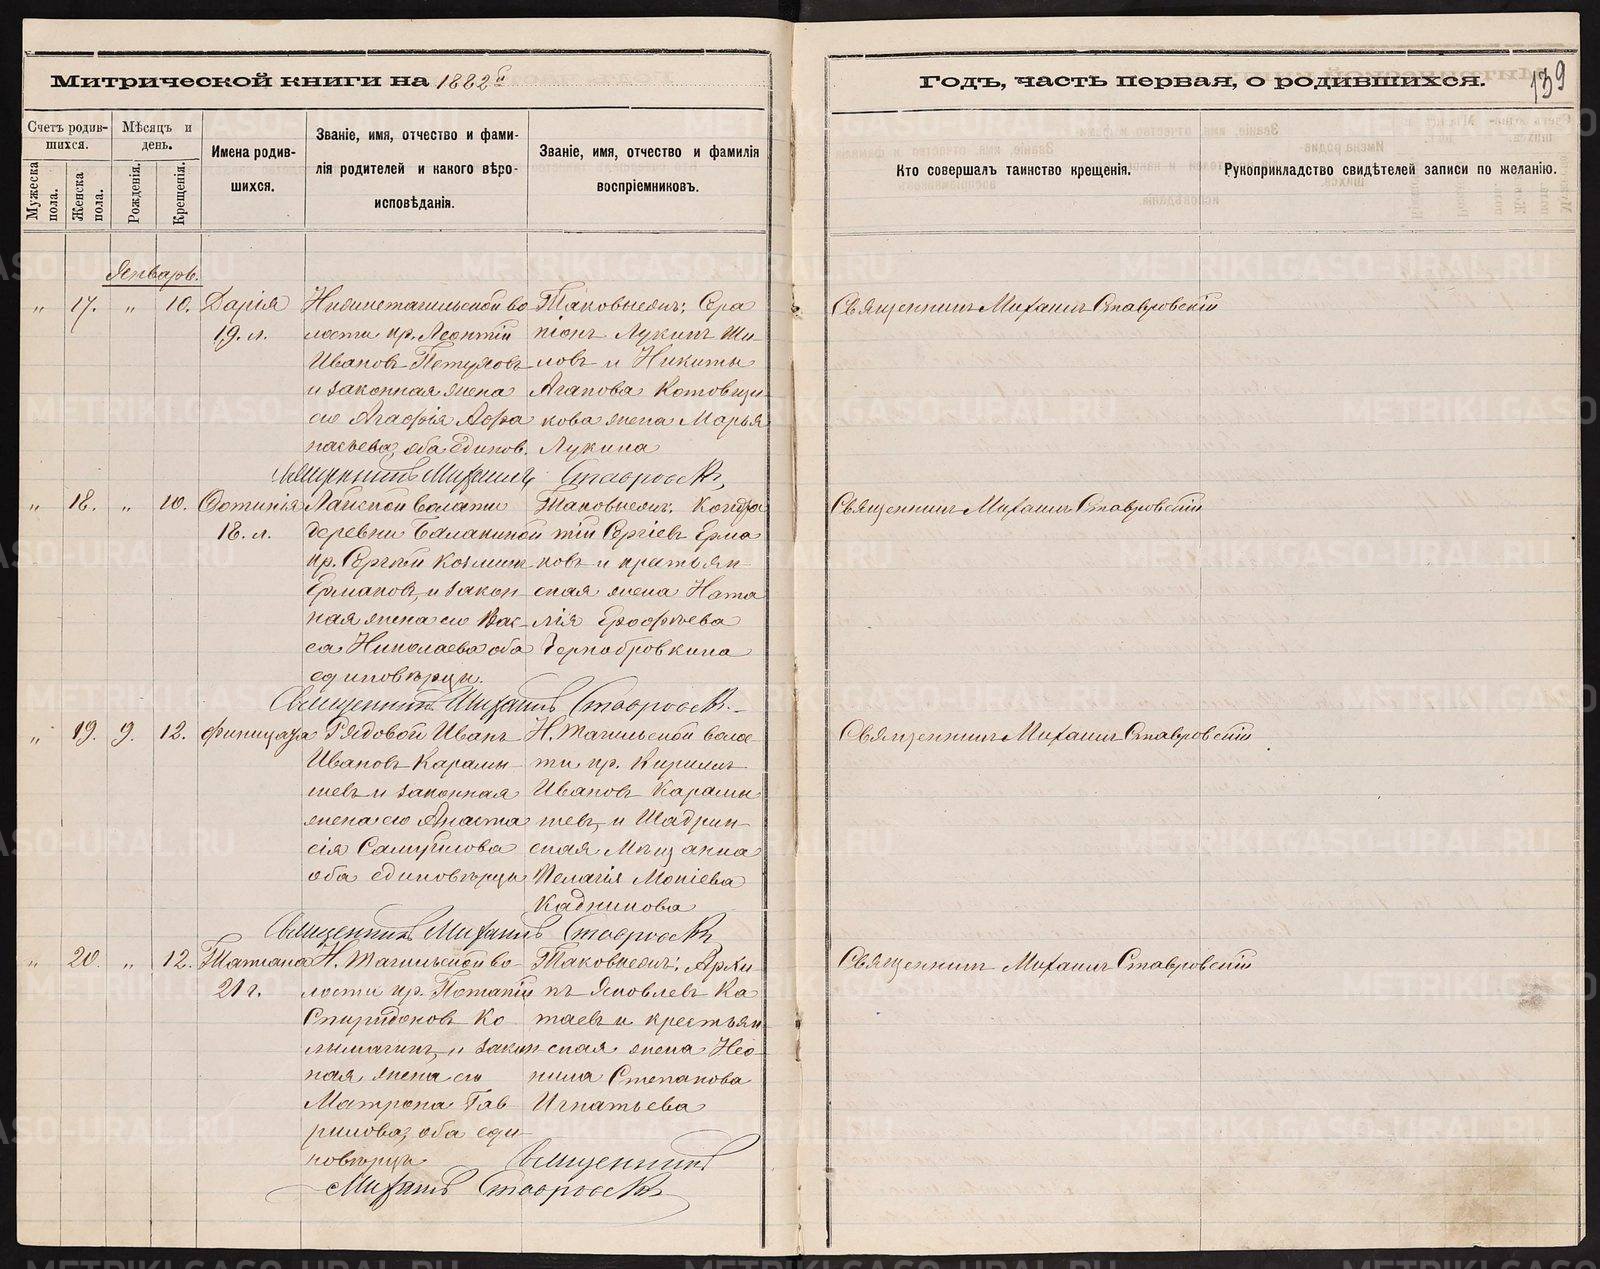 Митрической книги на 1882 г
Годъ, часть первая, о родившихся.
139
Счетъ родившихся.
Мѣсяцъ и день.
Имена родившихся.
Званіе, имя, отчество и фамилія родителей и какого вѣроисповѣданія.
Званіе, имя, отчество и фамилія воспріемниковъ.
Кто совершалъ таинство крещенія.
Рукоприкладство свидѣтелей записи по желанію.
Мужеска пола.
Женска пола.
Рожденія.
Крещенія.
Январь.
" 17. " 10. Дарія
19. л.
Нижнетагильской во
лости кр. Леонтій
Ивановъ Петуховъ
и законная жена
его Агафія Афа
насьева, оба единов.
Таковыежъ: Сера
піонъ Лукинъ Ши
ловъ и Никиты
Агапова Котовщи
кова жена Марья
Лукина
Священникъ Михаилъ Ставровскій
Священникъ Михаилъ Ставровскій
" 18. " 10. Фотинія
18. л.
Лайской волости
деревни Балакиной
кр. Сергѣй Козмин
Ермаковъ, и закон
ная жена его Вас
са Николаева оба
единовѣрцы.
Таковыежъ: Кондра
тій Сергіевъ Ерма
ковъ и крестьян
ская жена Ната
лія Ерофѣева
Чернобровкина
Священникъ Михаилъ Ставровскій
Священникъ Михаилъ Ставровскій
" 19. 9. 12. Фипицата
Рядовой Иванъ
Ивановъ Карамы
шевъ и законная
жена его Анаста
сія Самуилова
оба единовѣрцы
Н. Тагильской воло
сти кр. Кириллъ
Ивановъ Карамы
шевъ, и Шадрин
ская Мѣщанка
Пелагія Мокіева
Кадникова
Священникъ Михаилъ Ставровскій
Священникъ Михаилъ Ставровскій
" 20. " 12. Татіана
21 г.
Н. Тагильской во
лости кр. Потапій
Спиридоновъ Ко
лмагинъ, и закон
ная жена его
Матрона Гав
рилова, оба еди
новѣрцы
Таковыежъ: Архи
пъ Яковлевъ Ка
таевъ и крестьян
ская жена Нео
нила Степанова
Игнатьева
Священникъ
Михаилъ Ставровскій
Священникъ Михаилъ Ставровскій
METRIKI.GASO-URAL.RU